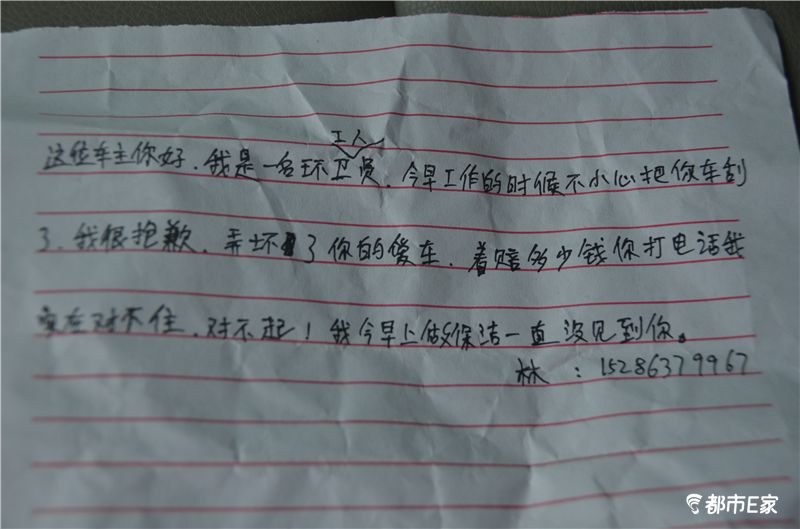 工人
这位车主你好.我是一名环卫员.今早工作的时候不小心把你车刮
了.我很抱歉.弄坏了你的爱车.看赔多少钱你打电话我
实在对不住.对不起!我今早上做保洁一直没见到你。
林:15286379967
都市E家